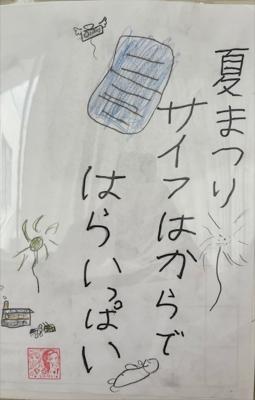 夏まつり
サイフはからで
はらいっぱい